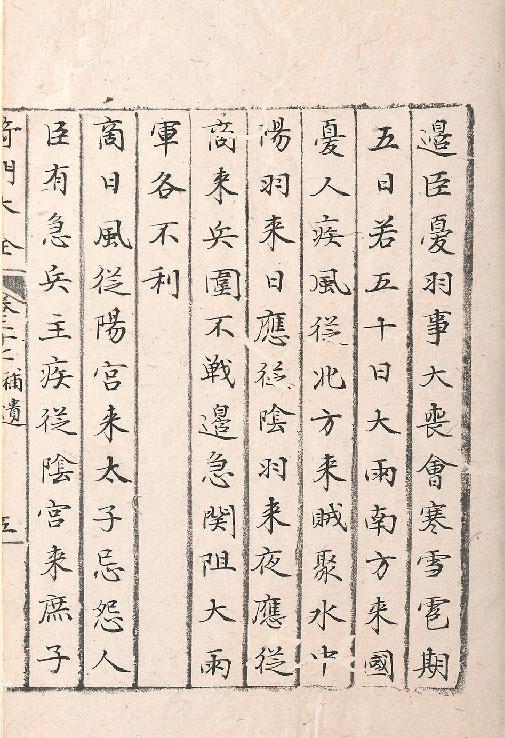 邉臣憂羽事大喪會寒雪雹期
五日若五十日大雨南方来國
憂人疾風従北方来賊聚水中
陽羽来日應従陰羽来夜應従
商来兵圍不戦邉急関阻大雨
軍各不利
商日風従陽宮来太子忌怨人
臣有急兵主疾従陰宮来庶子
奇門大全 卷二十二補遺 五